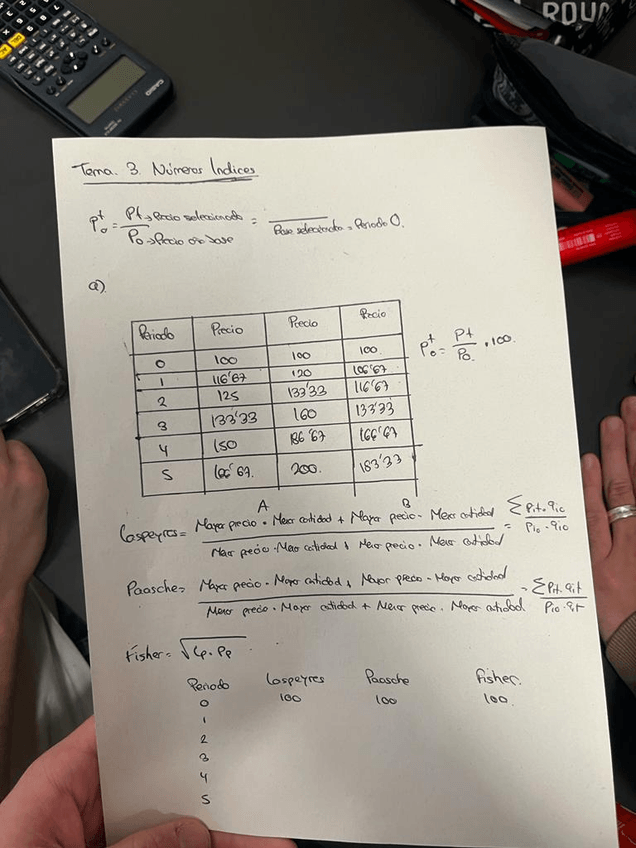 CASIO
ROUG
Tema. 3. Números Indices
P₀ᵗ = Pt → Precio seleccionado / P₀ → Precio año base = / Base seleccionado = Periodo 0.
a).
Periodo Precio Precio Precio
0 100 100 100
1 116'67 120 106'67
2 125 133'33 116'67
3 133'33 160 133'33
4 150 186'67 166'67
5 166'67. 200. 183'33
P₀ᵗ = Pt / P₀. · 100.
A B
Laspeyres = Mayor precio · Menor cantidad + Mayor precio · Menor cantidad / Menor precio · Menor cantidad + Menor precio · Menor cantidad = Σ Pit · qio / Pio · qio
Paasche = Mayor precio · Mayor cantidad + Mayor precio · Mayor cantidad / Menor precio · Mayor cantidad + Menor precio · Mayor cantidad = Σ Pit · qit / Pio · qit
Fisher = √Lp · Pp
Periodo Laspeyres Paasche Fisher.
0 100 100 100.
1
2
3
4
5